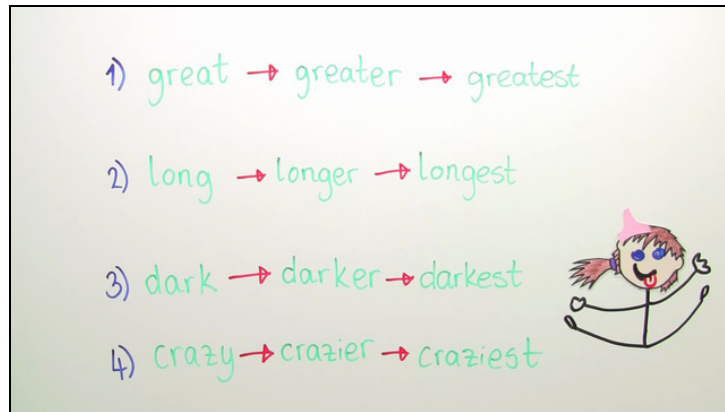 1) great → greater → greatest
2) long → longer → longest
3) dark → darker → darkest
4) crazy → crazier → craziest